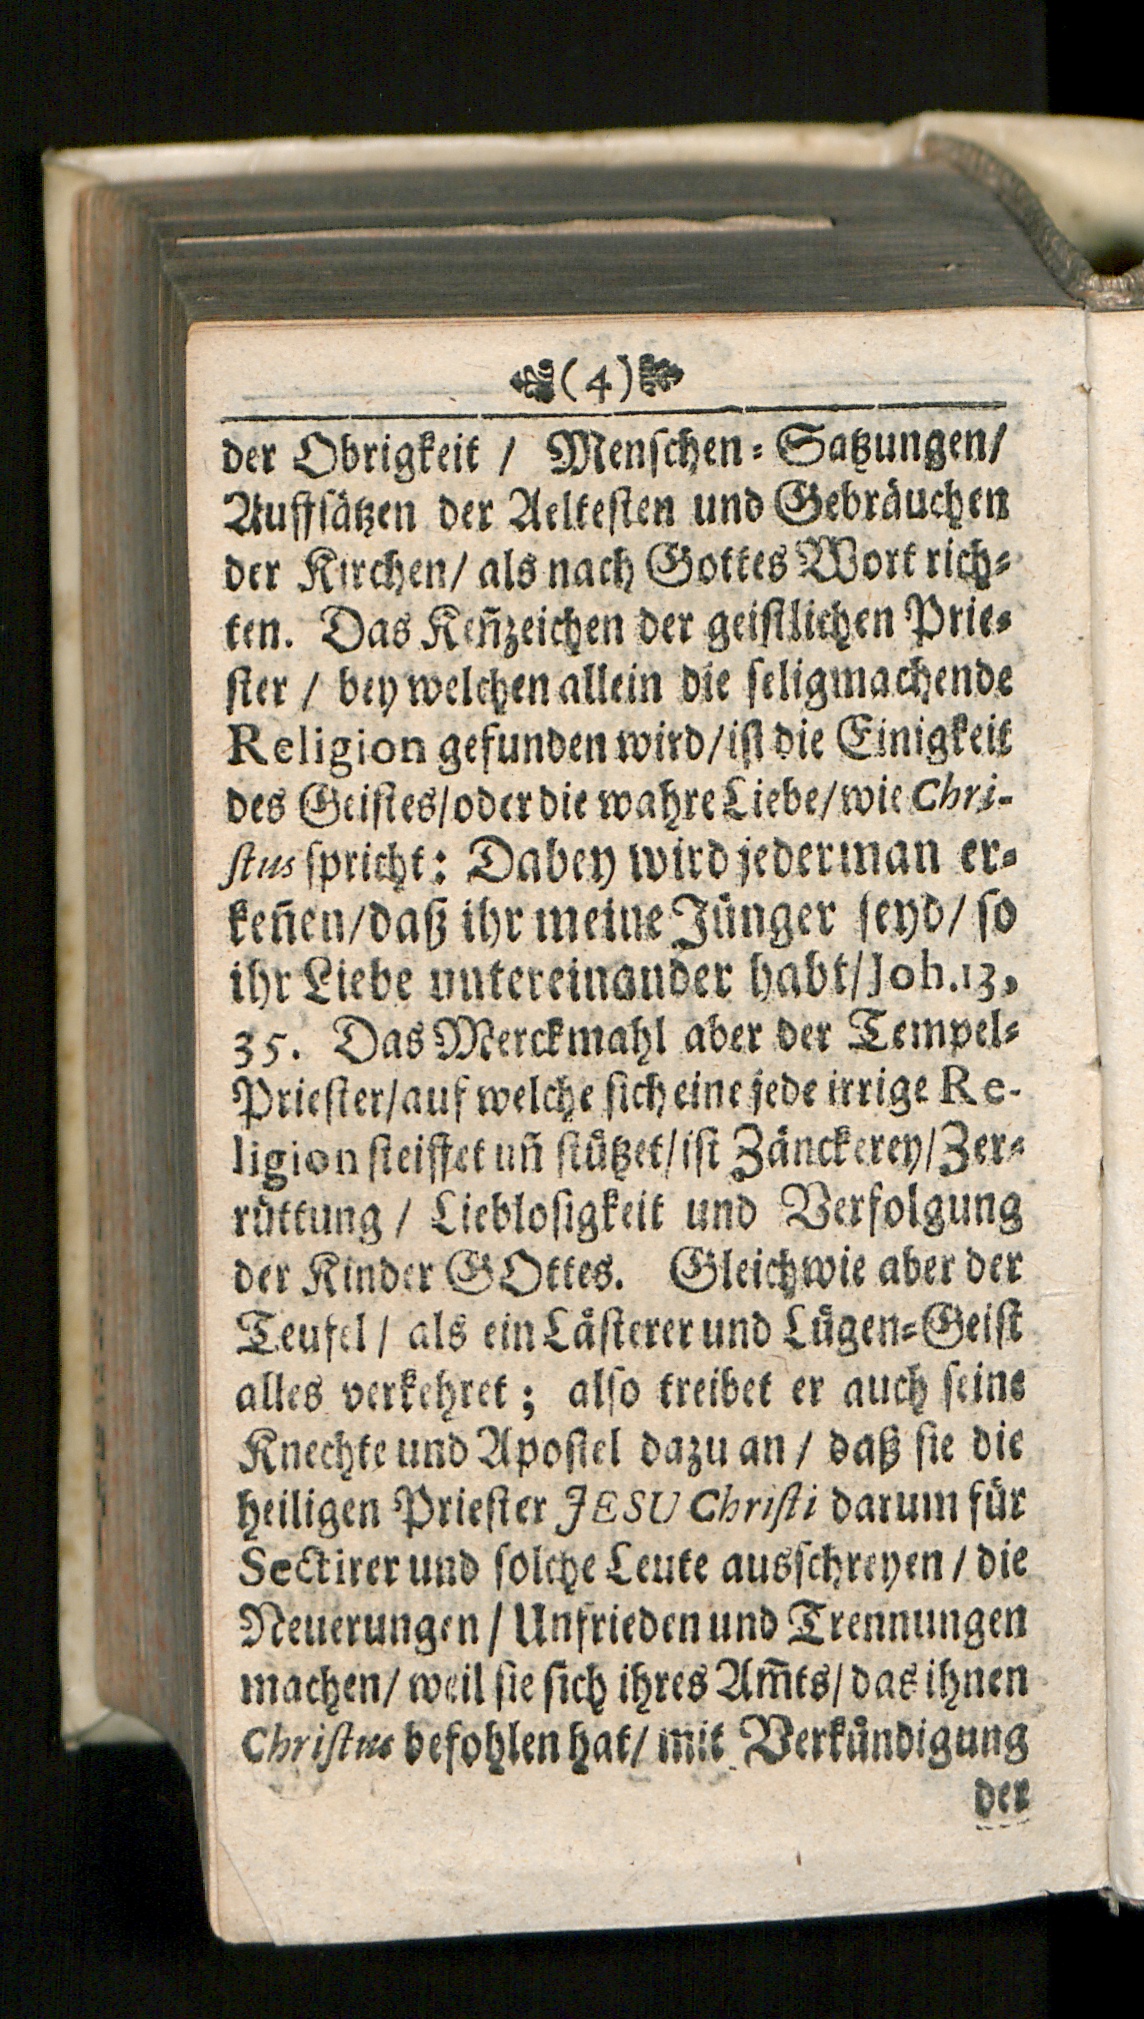 (4)
der Obrigkeit / Menschen-Satzungen/
Auffsätzen der Aeltesten und Gebräuchen
der Kirchen/ als nach Gottes Wort rich-
ten. Das Keñzeichen der geistlichen Prie-
ster / bey welchen allein die seligmachende
Religion gefunden wird/ist die Einigkeit
des Geistes/oder die wahre Liebe/wie Chri-
stus spricht: Dabey wird jederman er-
keñen/daß ihr meine Jünger seyd/ so
ihr Liebe untereinander habt/Joh.13,
35. Das Merckmahl aber der Tempel-
Priester/auf welche sich eine jede irrige Re-
ligion steiffet uñ stützet/ist Zänckerey/Zer-
rüttung / Lieblosigkeit und Verfolgung
der Kinder GOttes. Gleichwie aber der
Teufel / als ein Lästerer und Lügen-Geist
alles verkehret ; also treibet er auch seine
Knechte und Apostel dazu an / daß sie die
heiligen Priester JESU Christi darum für
Sectirer und solche Leute ausschreyen / die
Neuerungen / Unfrieden und Trennungen
machen/ weil sie sich ihres Am̃ts/ das ihnen
Christus befohlen hat/ mit Verkündigung
der